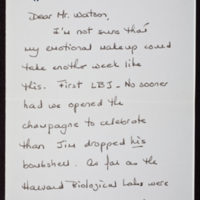 Dear Mr. Watson,
I'm not sure that
my emotional makeup could
take another week like
this. First LBJ - No sooner
had we opened the
champagne to celebrate
than Jim dropped his
bombshell. As far as the
Harvard Biological Labs were